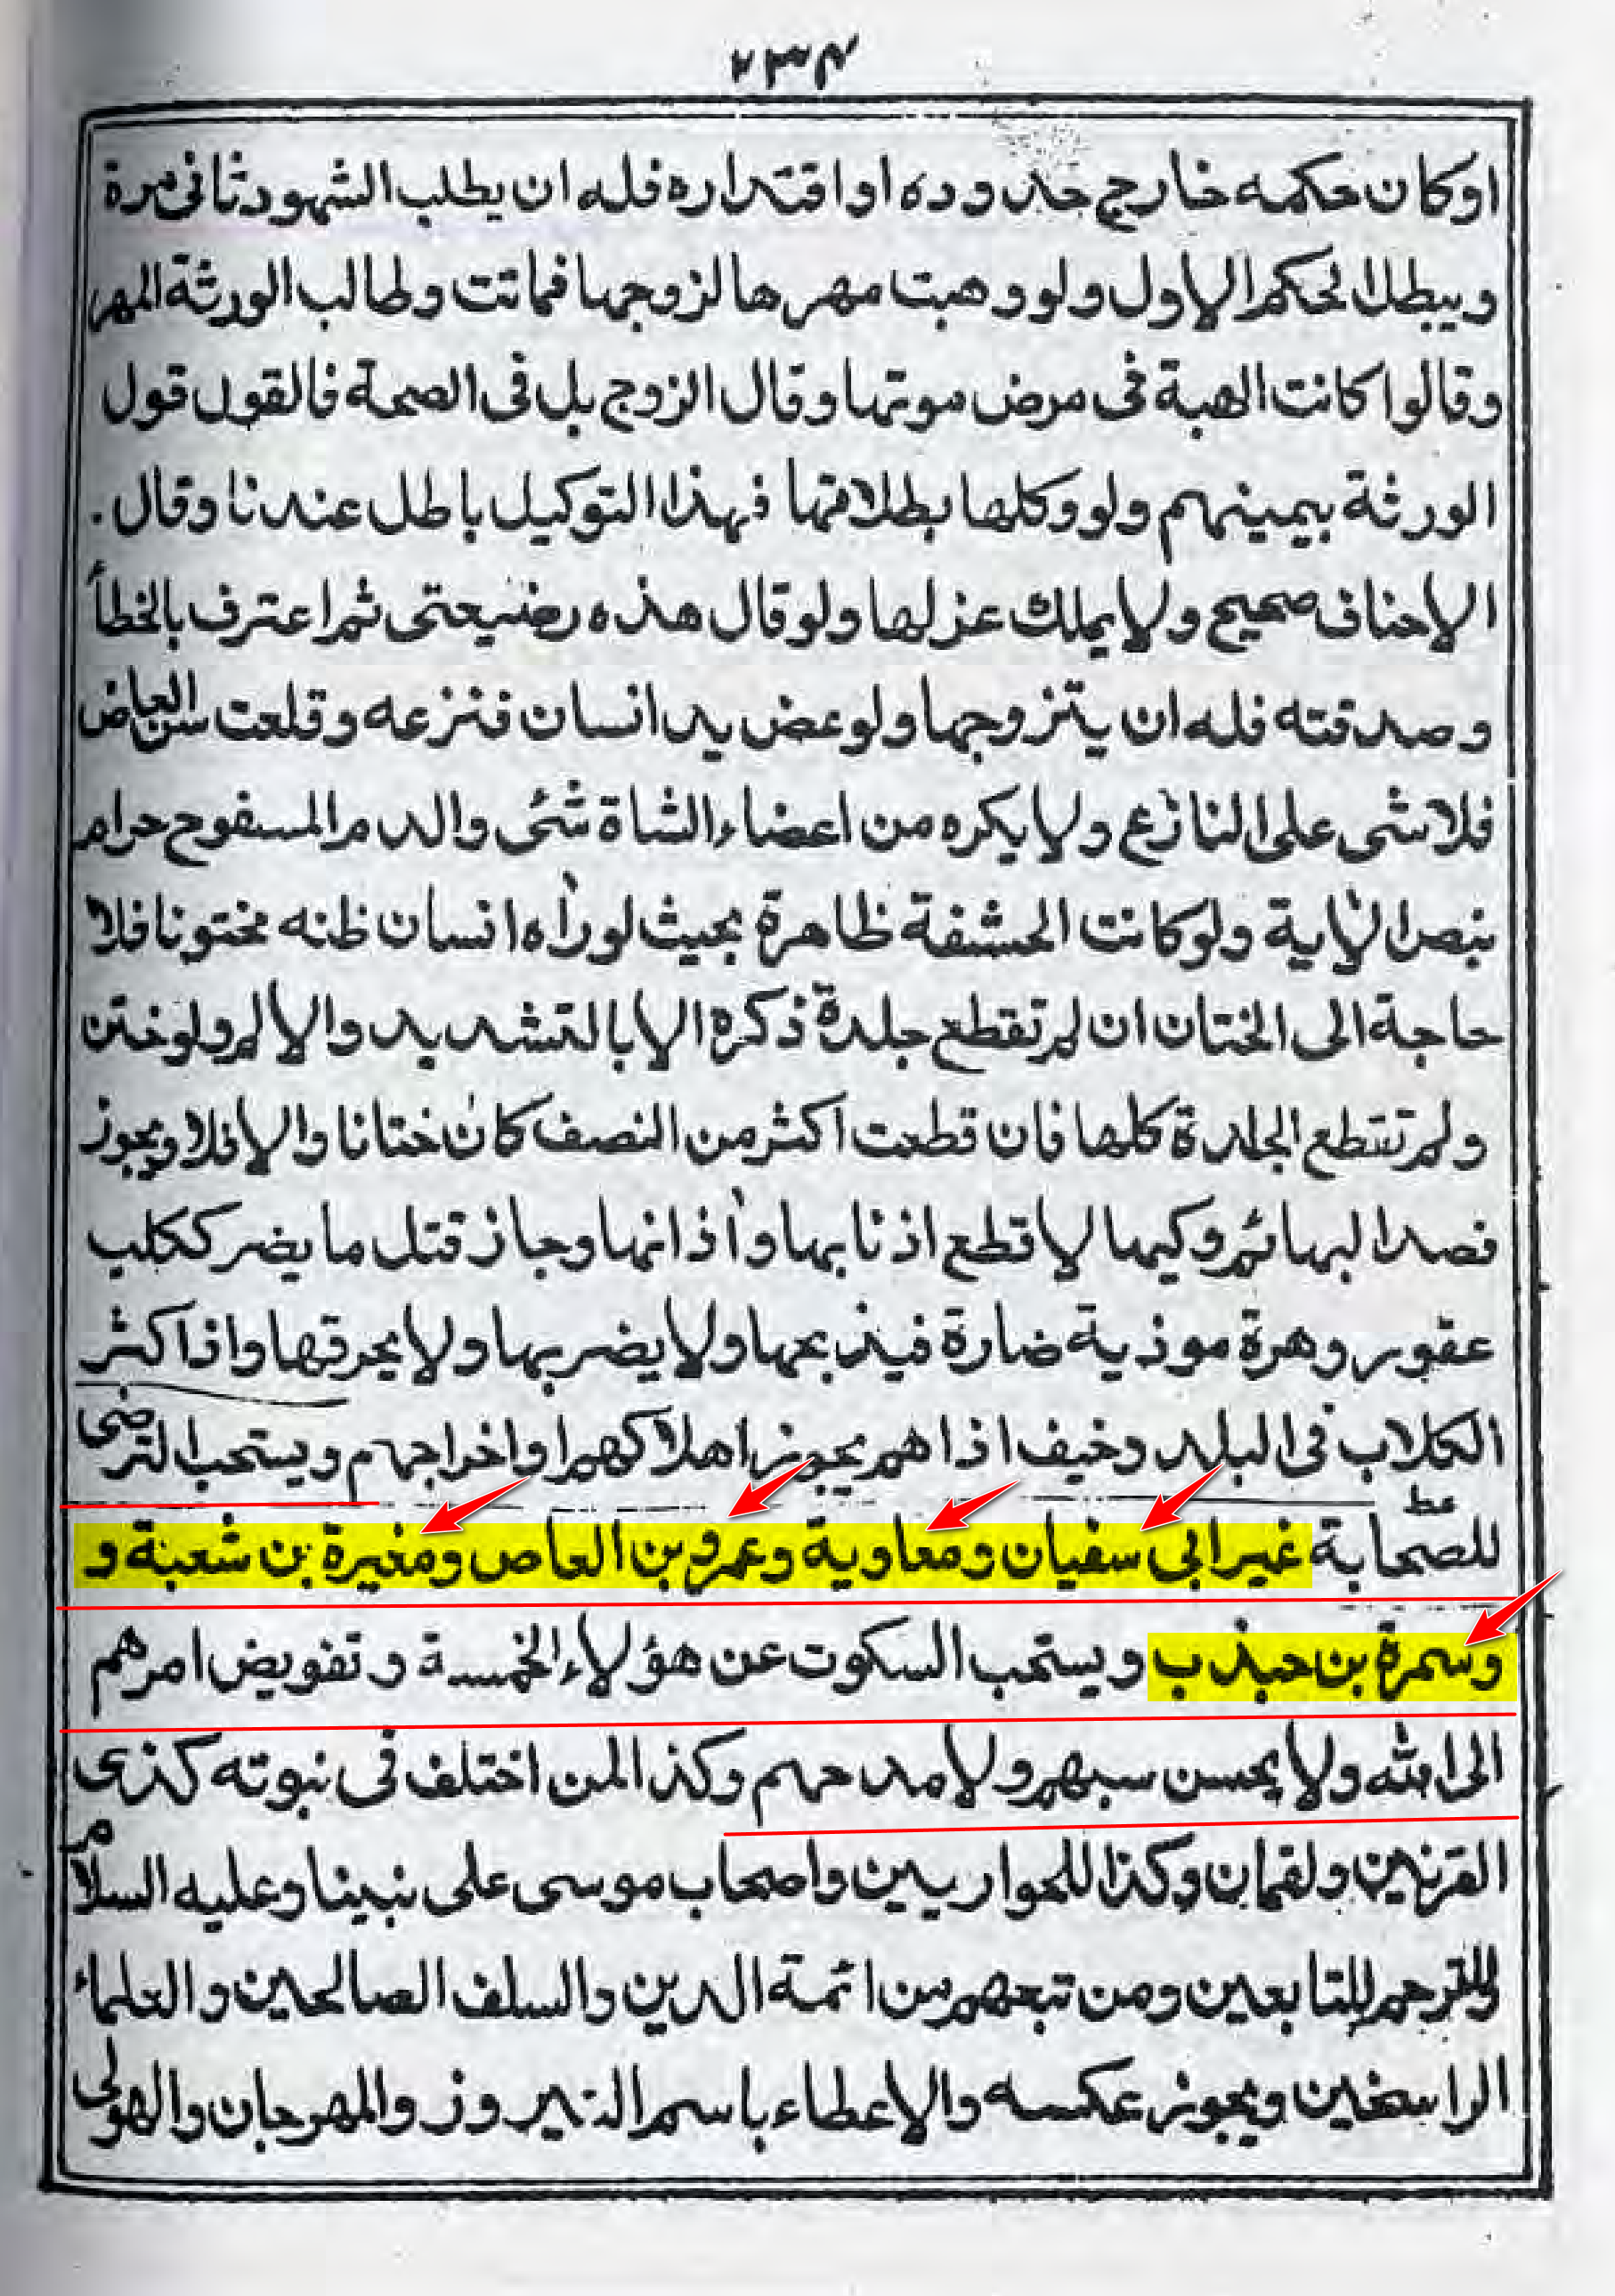 ٢٣٤
اوكان حكمه خارج حدوده او اقتداره فله ان يطلب الشهود ثانى مرة
ويبطل الحكم الاول ولو وهبت مهرها لزوجها فماتت وطالب الورثة المهر
وقالوا كانت الهبة فى مرض موتها وقال الزوج بل فى الصحة فالقول قول
الورثة بيمينهم ولو وكلها بطلاقها فهذا التوكيل باطل عندنا وقال.
الاحناف صحيح ولا يملك عزلها ولو قال هذه رضيعتى ثم اعترف بالخطأ
وصدقته فله ان يتزوجها ولو عض يد انسان فنزعه وقلعت سن العاض
فلا شى على النازع ولا يكره من اعضاء الشاة شئى والدم المسفوح حرام
بنص الاية ولو كانت الحشفة ظاهرة بحيث لو رأه انسان ظنه مختونا فلا
حاجة الى الختان ان لم تقطع جلدة ذكره الا بالتشديد والالم ولو ختن
ولم تقطع الجلدة كلها فان قطعت اكثر من النصف كان ختانا والا فلا ويجوز
فصد البهائم وكيها لا قطع اذنابها وأذانها وجاز قتل ما يضر ككلب
عقور وهرة موذية ضارة فيذبحها ولا يضربها ولا يحرقها واذا كثر
الكلاب فى البلد وخيف اذاهم يجوز اهلاكهم واخراجهم ويستحب الترضى
للصحابة غير ابى سفيان ومعاوية وعمرو بن العاص ومغيرة بن شعبة و
وسمرة بن جندب ويستحب السكوت عن هؤلاء الخمسة وتفويض امرهم
الى الله ولا يحسن سبهم ولا مدحهم وكذا لمن اختلف فى نبوته كذى
القرنين ولقمان وكذا للحواريين واصحاب موسى على نبينا وعليه السلام
والترحم للتابعين ومن تبعهم من ائمة الدين والسلف الصالحين والعلماء
الراسخين ويجوز عكسه والاعطاء باسم النيروز والمهرجان والهولى